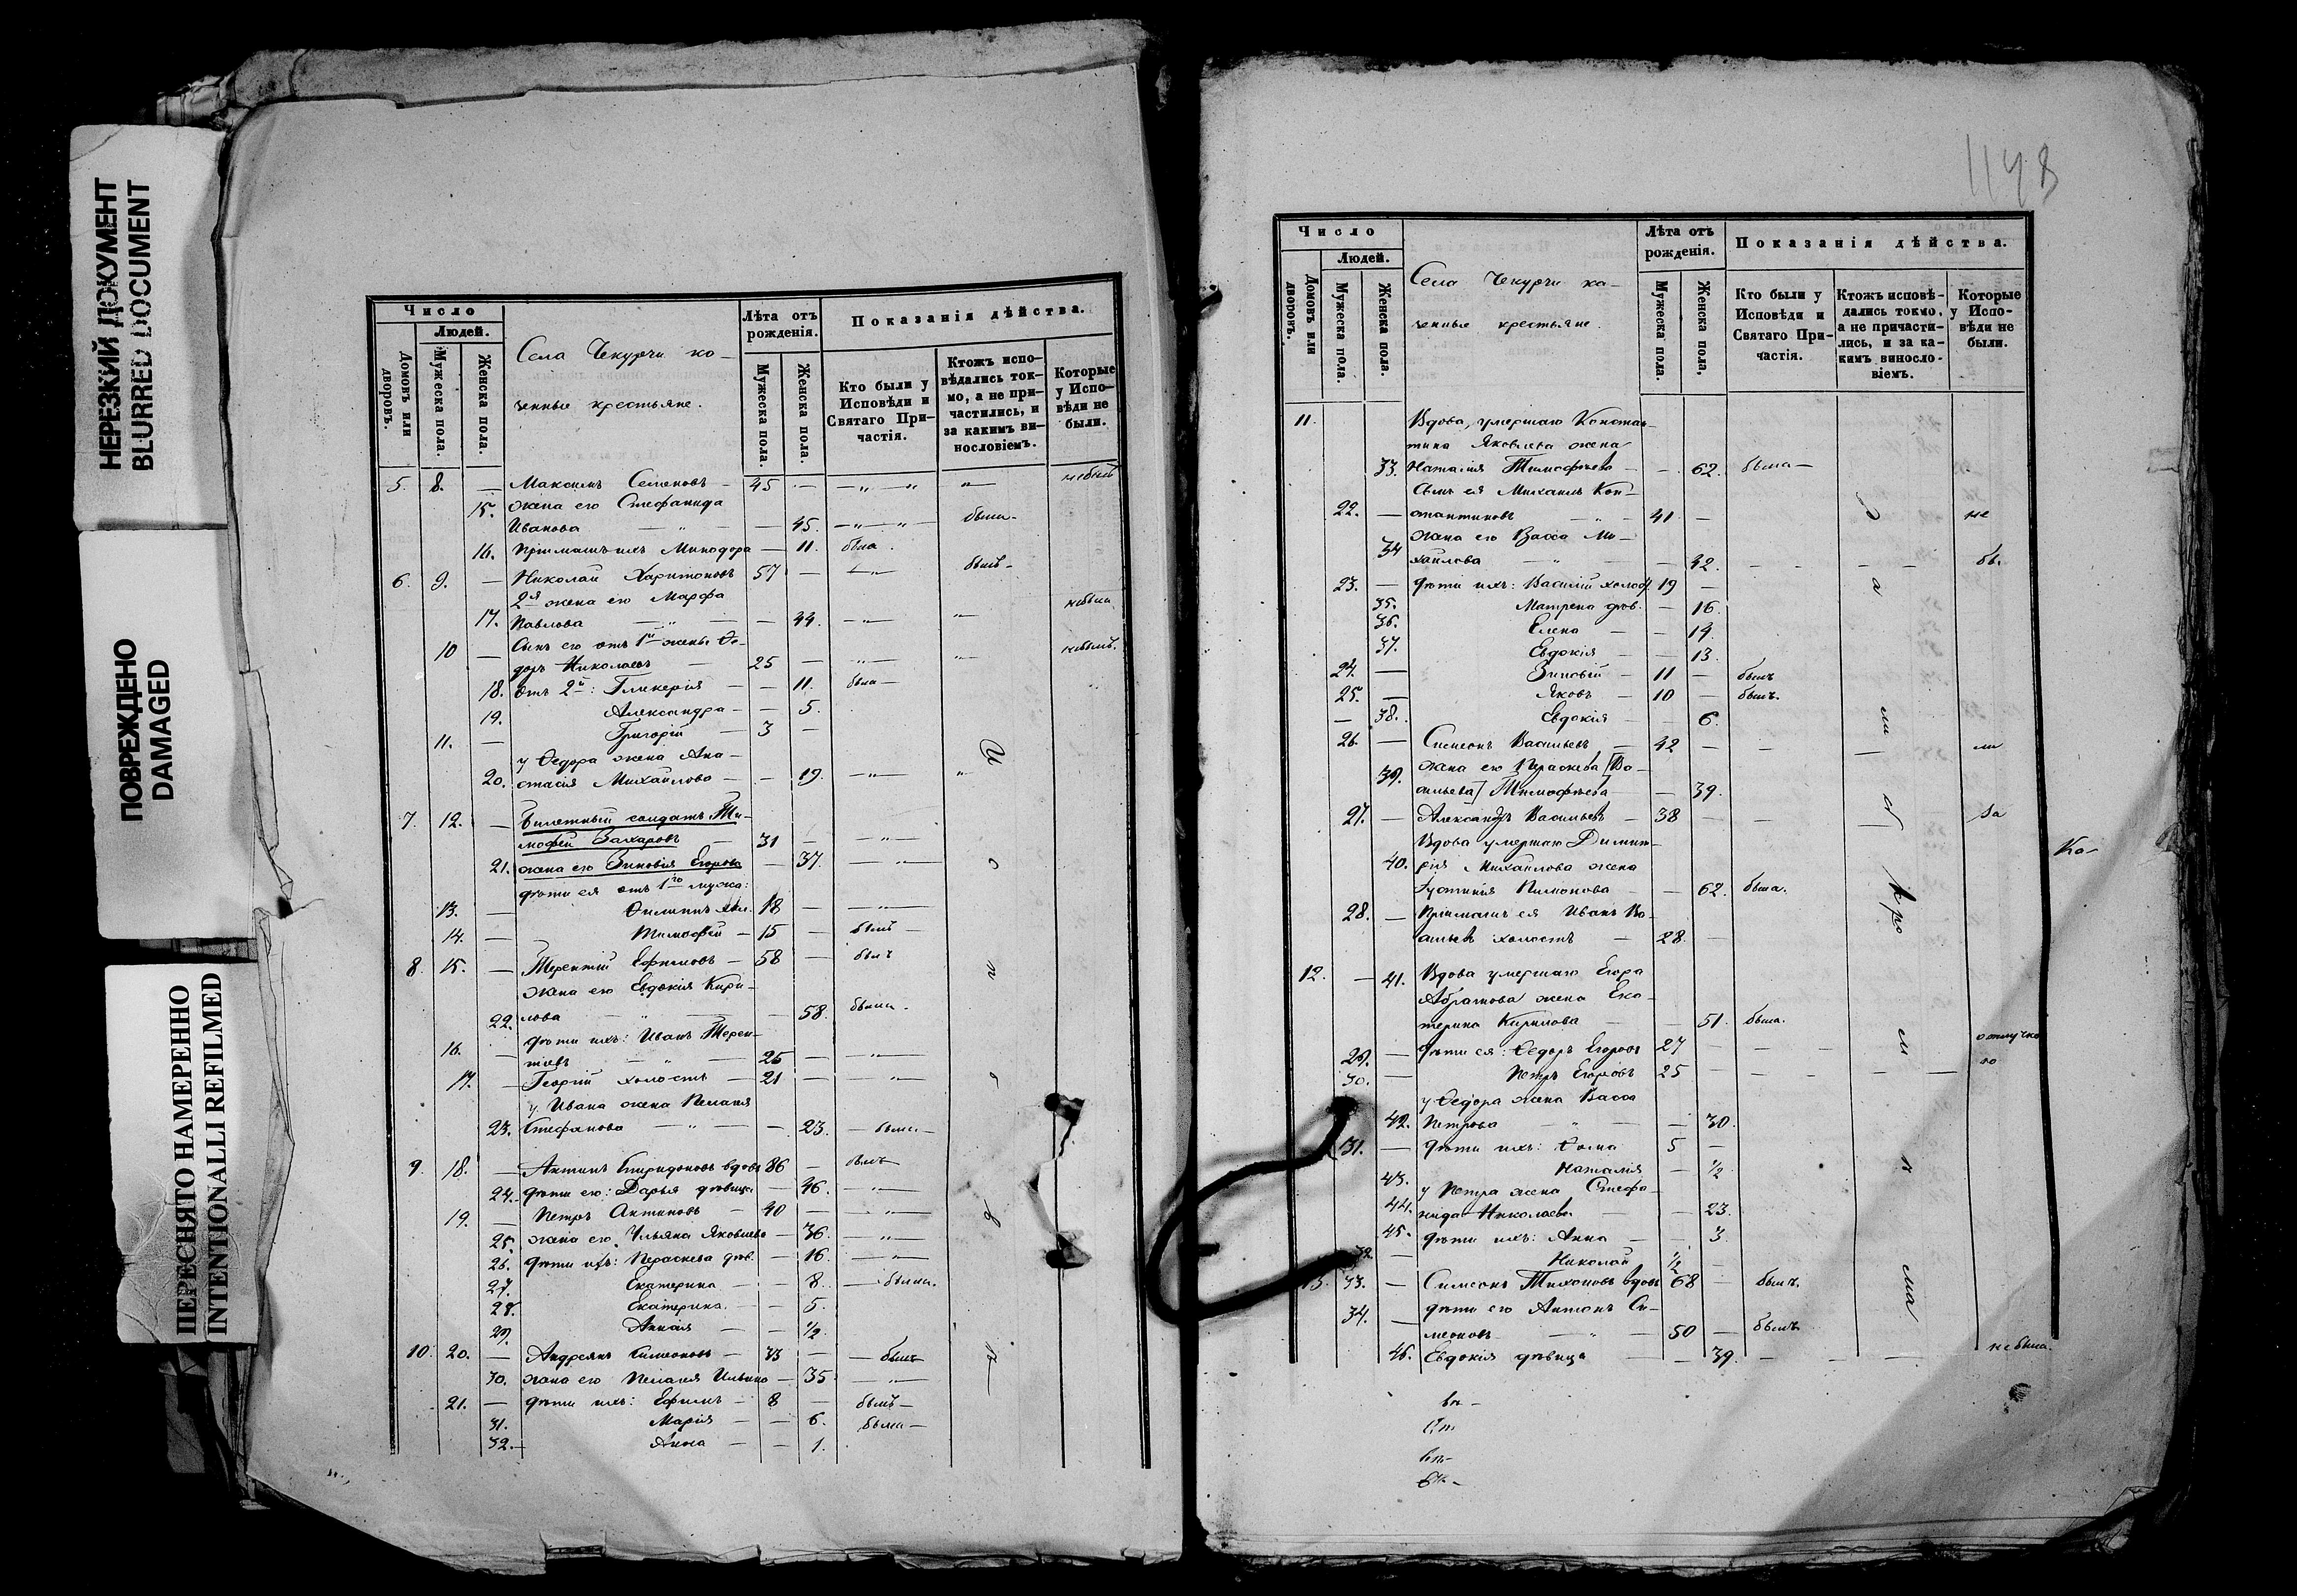 НЕРЕЗКИЙ ДОКУМЕНТ
BLURRED DOCUMENT
ПОВРЕЖДЕНО
DAMAGED
ПЕРЕСНЯТО НАМЕРЕННО
INTENTIONALLI REFILMED
Число
Людей.
Домовъ или дворовъ.
Мужеска пола.
Женска пола.
Села Чекурчи ка-
зенные крестьяне.
Лѣта отъ рожденія.
Мужеска пола.
Женска пола.
Показанія дѣйства.
Кто были у Исповѣди и Святаго При-частія.
Ктожъ испо-вѣдались ток-мо, а не при-частились, и за какимъ ви-нословіемъ.
Которые у Испо-вѣди не были.
5. 8. — Максимъ Семеновъ — 45 — небылъ
15. жена его Стефанида
Иванова — 45. были
16. Пріемышъ ихъ Минодора — 11. была.
6. 9. — Николай Харитоновъ 57 — былъ
2я жена его Марфа
17. Павлова — 44. небыла
10 — Сынъ его отъ 1й жены Ѳе-
доръ Николаевъ — 25 — небылъ.
18. отъ 2й: Гликерія — 11. была —
19. Александра — 5.
11. — Григорій — 3 —
у Ѳедора жена Ана-
20. стасія Михайлова — 19.
7. 12. — Билетный солдатъ Ти-
мофей Захаровъ — 31 —
21. жена его Зиновія Егорова — 37.
дѣти ея отъ 1го мужа:
13. — Филиппъ 18 —
14. — Тимофей — 15 — былъ
8. 15. — Терентій Ефимовъ — 58 — былъ
жена его Евдокія Кири-
22. лова — 58. были
16. — дѣти ихъ: Иванъ Терен-
тіевъ — 26 —
17. — Георгій холостъ — 21 —
у Ивана жена Пелагія
23. Стефанова — 23. — были —
9. 18. — Антипъ Спиридоновъ вдовъ 86 — былъ
24. дѣти его: Дарья дѣвица — 46.
19. — Петръ Антиповъ — 40 —
25. жена его Ульяна Яковлева — 36.
26. дѣти ихъ: Параскева дѣв. — 16
27. Екатерина — 8. — были.
28. Екатерина — 5.
29. Анна — 1/2
10. 20. — Андреянъ Симеоновъ — 33 — былъ
30. жена его Пелагія Ильина — 35
21. — дѣти ихъ: Ефимъ — 8 — былъ —
31. Марія — 6. была —
32. — Анна — 1.
1148
Число
Людей.
Домовъ или дворовъ.
Мужеска пола.
Женска пола.
Села Чекурчи ка-
зенные крестьяне.
Лѣта отъ рожденія.
Мужеска пола.
Женска пола,
Показанія дѣйства.
Кто были у Исповѣди и Святаго При-частія.
Ктожъ исповѣ-дались токмо, а не причасти-лись, и за ка-кимъ винослo-віемъ.
Которые у Испо-вѣди не были.
11. Вдова, умершаго Констан-
тина Яковлева жена
33. Наталія Тимофѣева — 62. была —
Сынъ ея Михаилъ Кон-
22. — стантиновъ — 41 — не
жена его Васса Ми-
34 хайлова — 42. бы.
23. — дѣти ихъ: Василій холост 19 —
35. Матрена дѣв. — 16.
36. Елена — 14.
37. Евдокія — 13.
24. — Зиновій — 11 — былъ
25. — Яковъ — 10 — былъ.
— 38. Евдокія — 6.
26. — Симеонъ Васильевъ — 42 — ли
39. жена его Параскева [Ва-
сильева] Тимофѣева — 39.
27. — Александръ Васильевъ — 38 — за
Вдова умершаго Димит-
40. рія Михайлова жена
Іустинія Пименова — 62. была.
28. — Пріемышъ ея Иванъ Ва-
сильевъ холостъ — 28. —
12. — 41. Вдова умершаго Егора
Абрамова жена Ека-
терина Кирилова — 51. была.
29. — дѣти ея: Ѳедоръ Егоровъ 27 — отлучко
30. — Петръ Егоровъ 25 — ю
у Ѳедора жена Васса
42. Петрова — 30.
31. — дѣти ихъ: Ѳома 5 —
43. Наталія — 1/2
у Петра жена Стефа-
44. нида Николаева — 23.
45. дѣти ихъ: Анна — 3
32. — Николай 1/2 —
13. 33. — Симеонъ Тихоновъ вдовъ 68 — былъ.
34. — дѣти его Антонъ Си-
меоновъ — 50 — былъ
46. Евдокія дѣвица — 39. — небыла.
Ка-